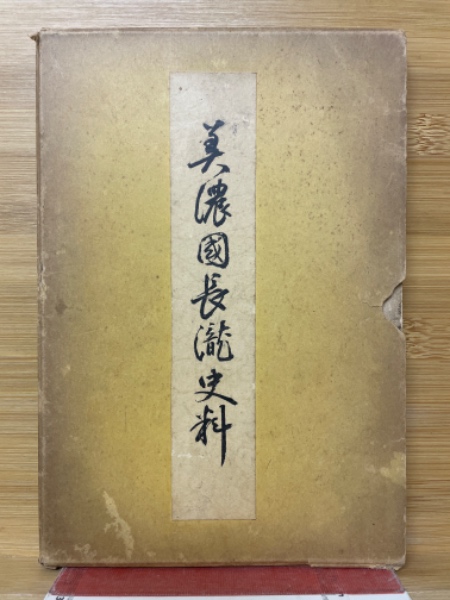 美濃國長瀧史料